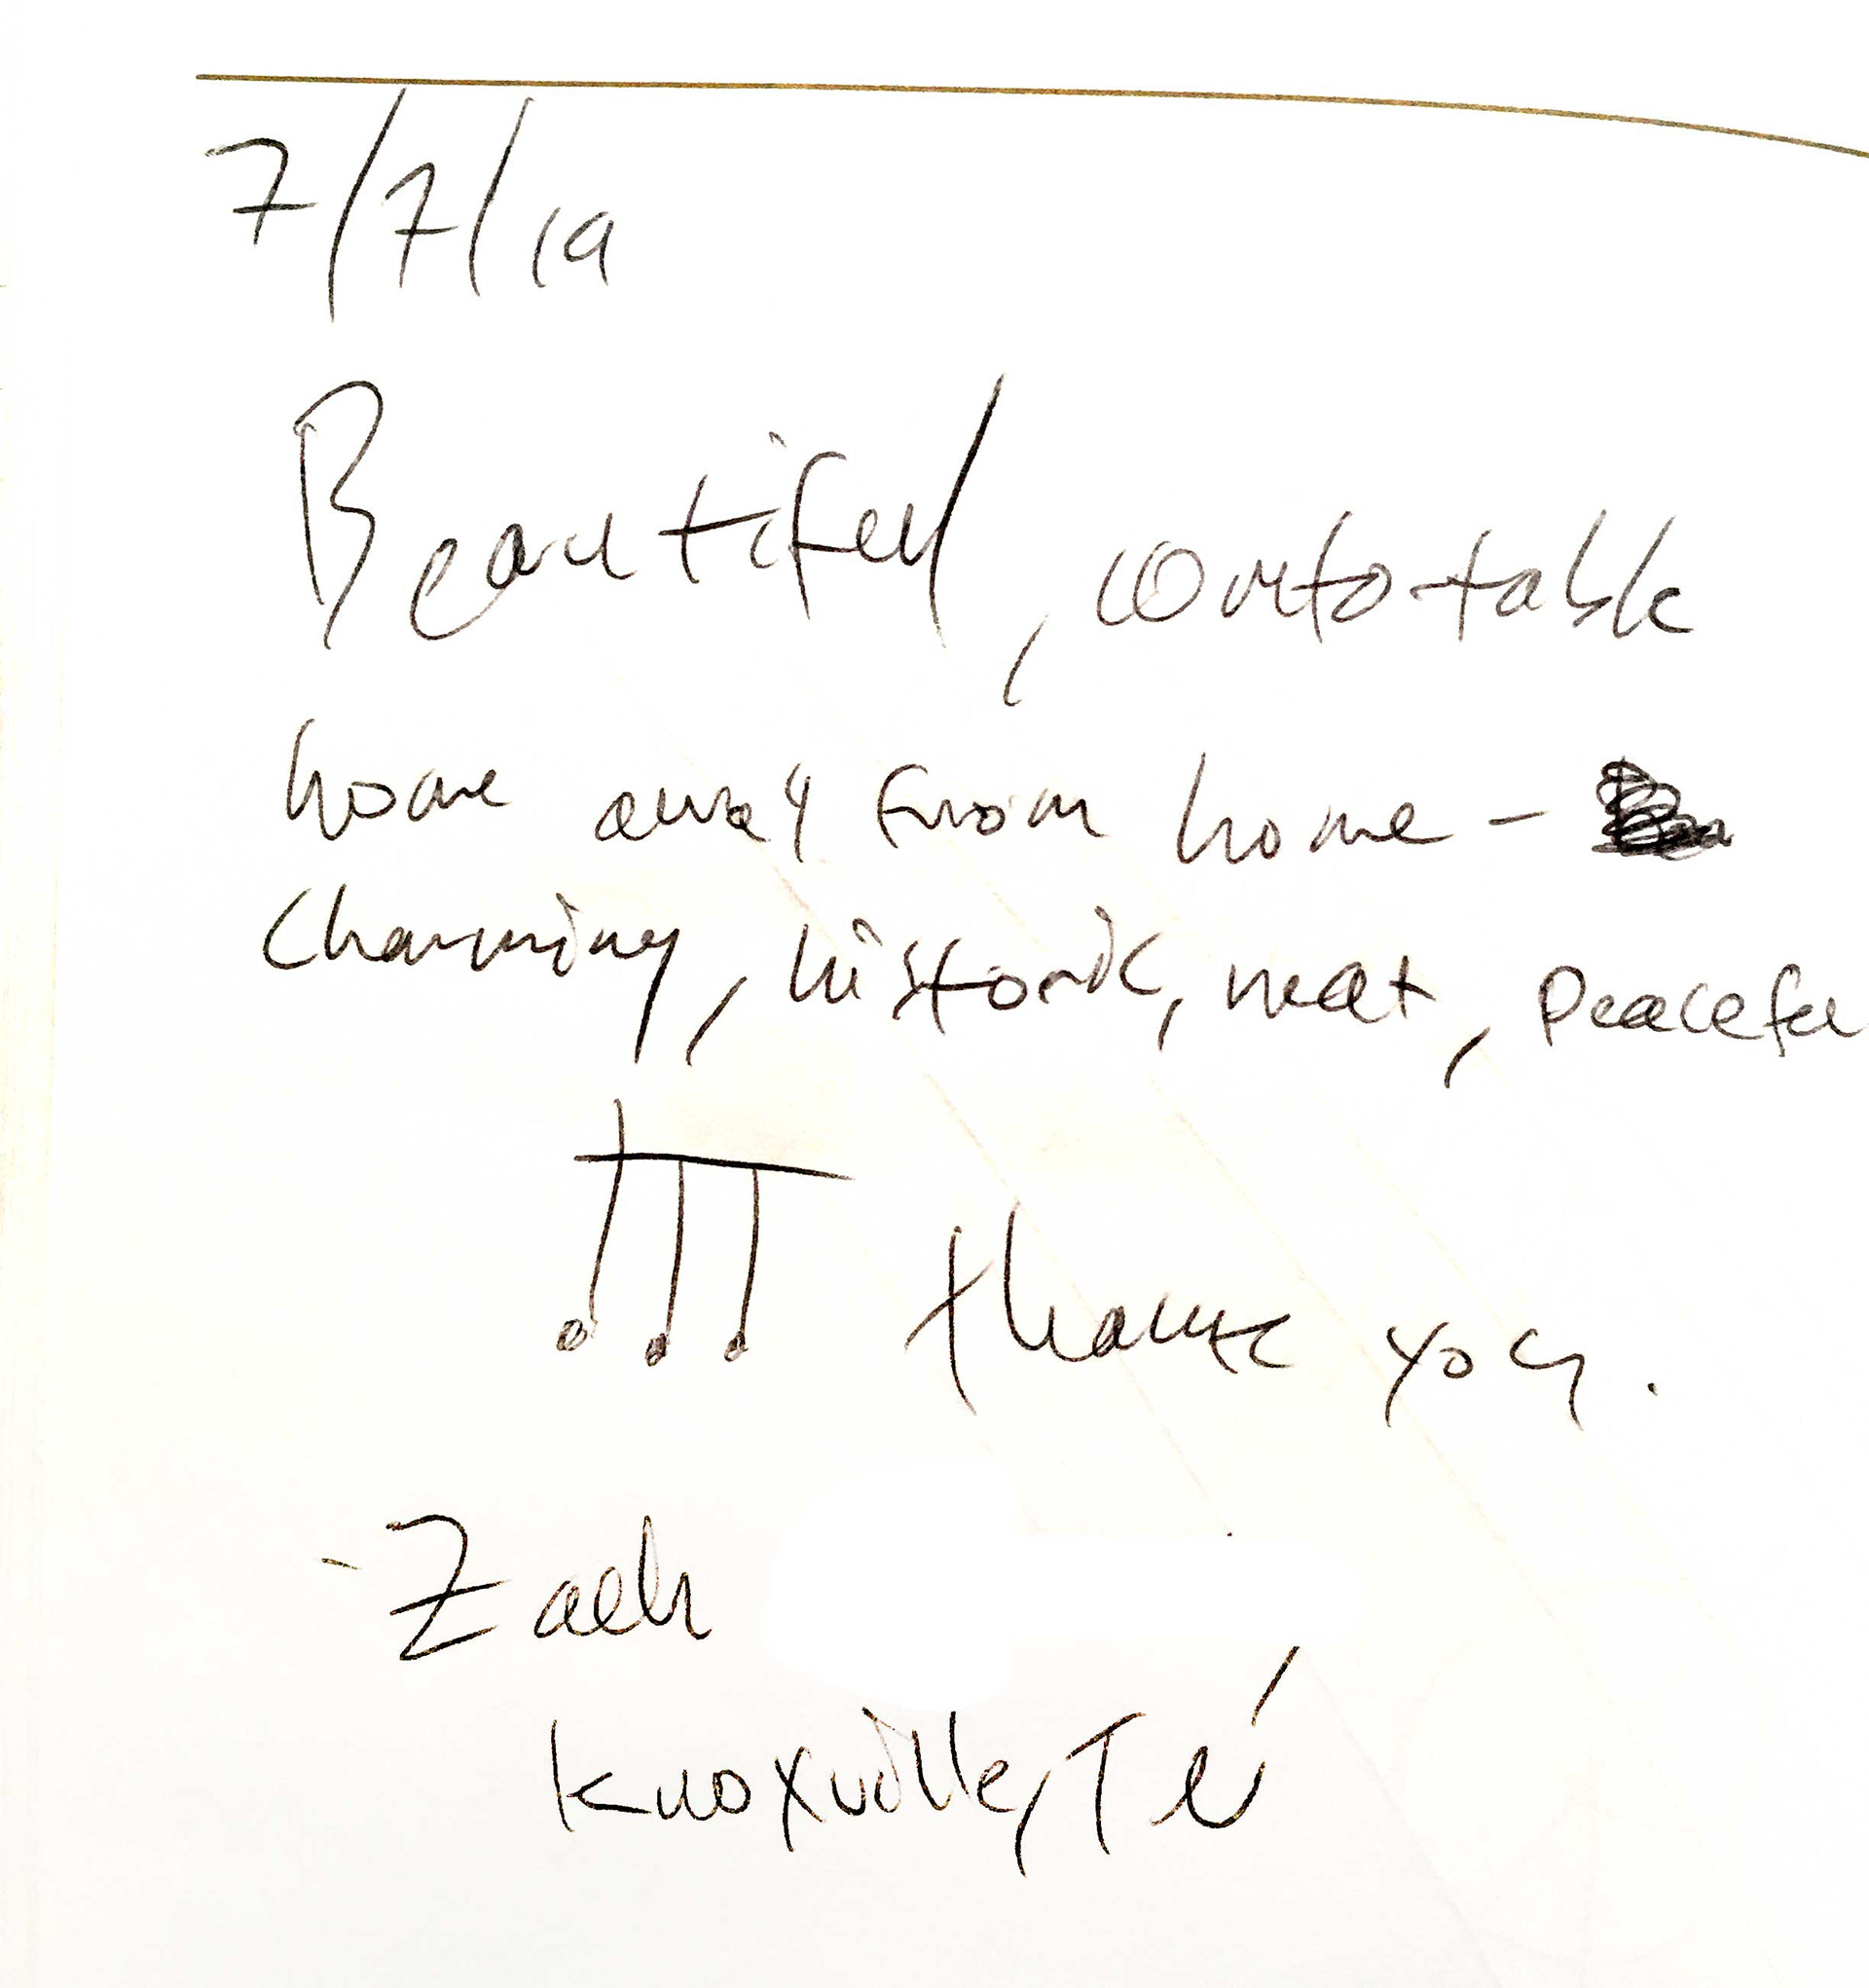 7/7/19
Beautiful, comfortable
home away from home -
Charming, historic, neat, peaceful
!!! thank you.
- Zach
Knoxville, TN